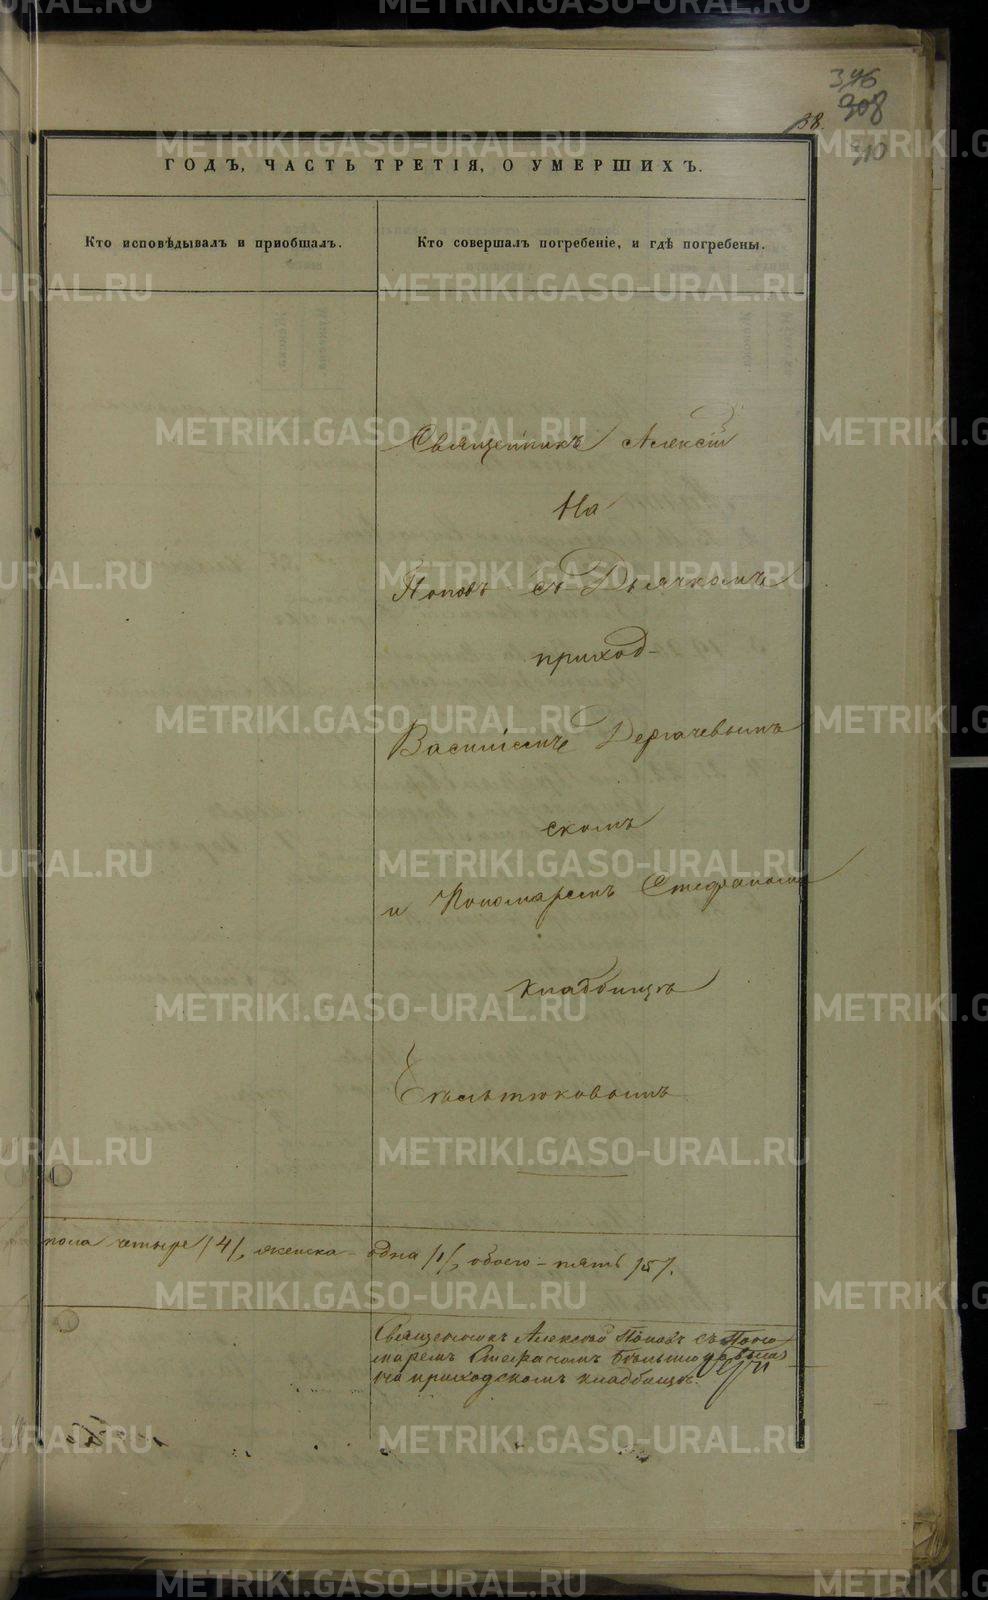 396
308
38.
310
ГОДЪ, ЧАСТЬ ТРЕТІЯ, О УМЕРШИХЪ.
Кто исповѣдывалъ и приобщалъ.
Кто совершалъ погребеніе, и гдѣ погребены.
Священникъ Алексій
На
Поповъ съ Дьячкомъ
приход-
Василіемъ Дергачевымъ
скомъ
и Пономаремъ Стефаномъ
кладбищѣ
Бѣльтюковымъ
пола четыре /4/, женска - одна /1/, обоего - пять /5/.
Священникъ Алексѣй Поповъ съ Поно
маремъ Стефаномъ Бѣльтюковымъ
на приходскомъ кладбищѣ.
METRIKI.GASO-URAL.RU